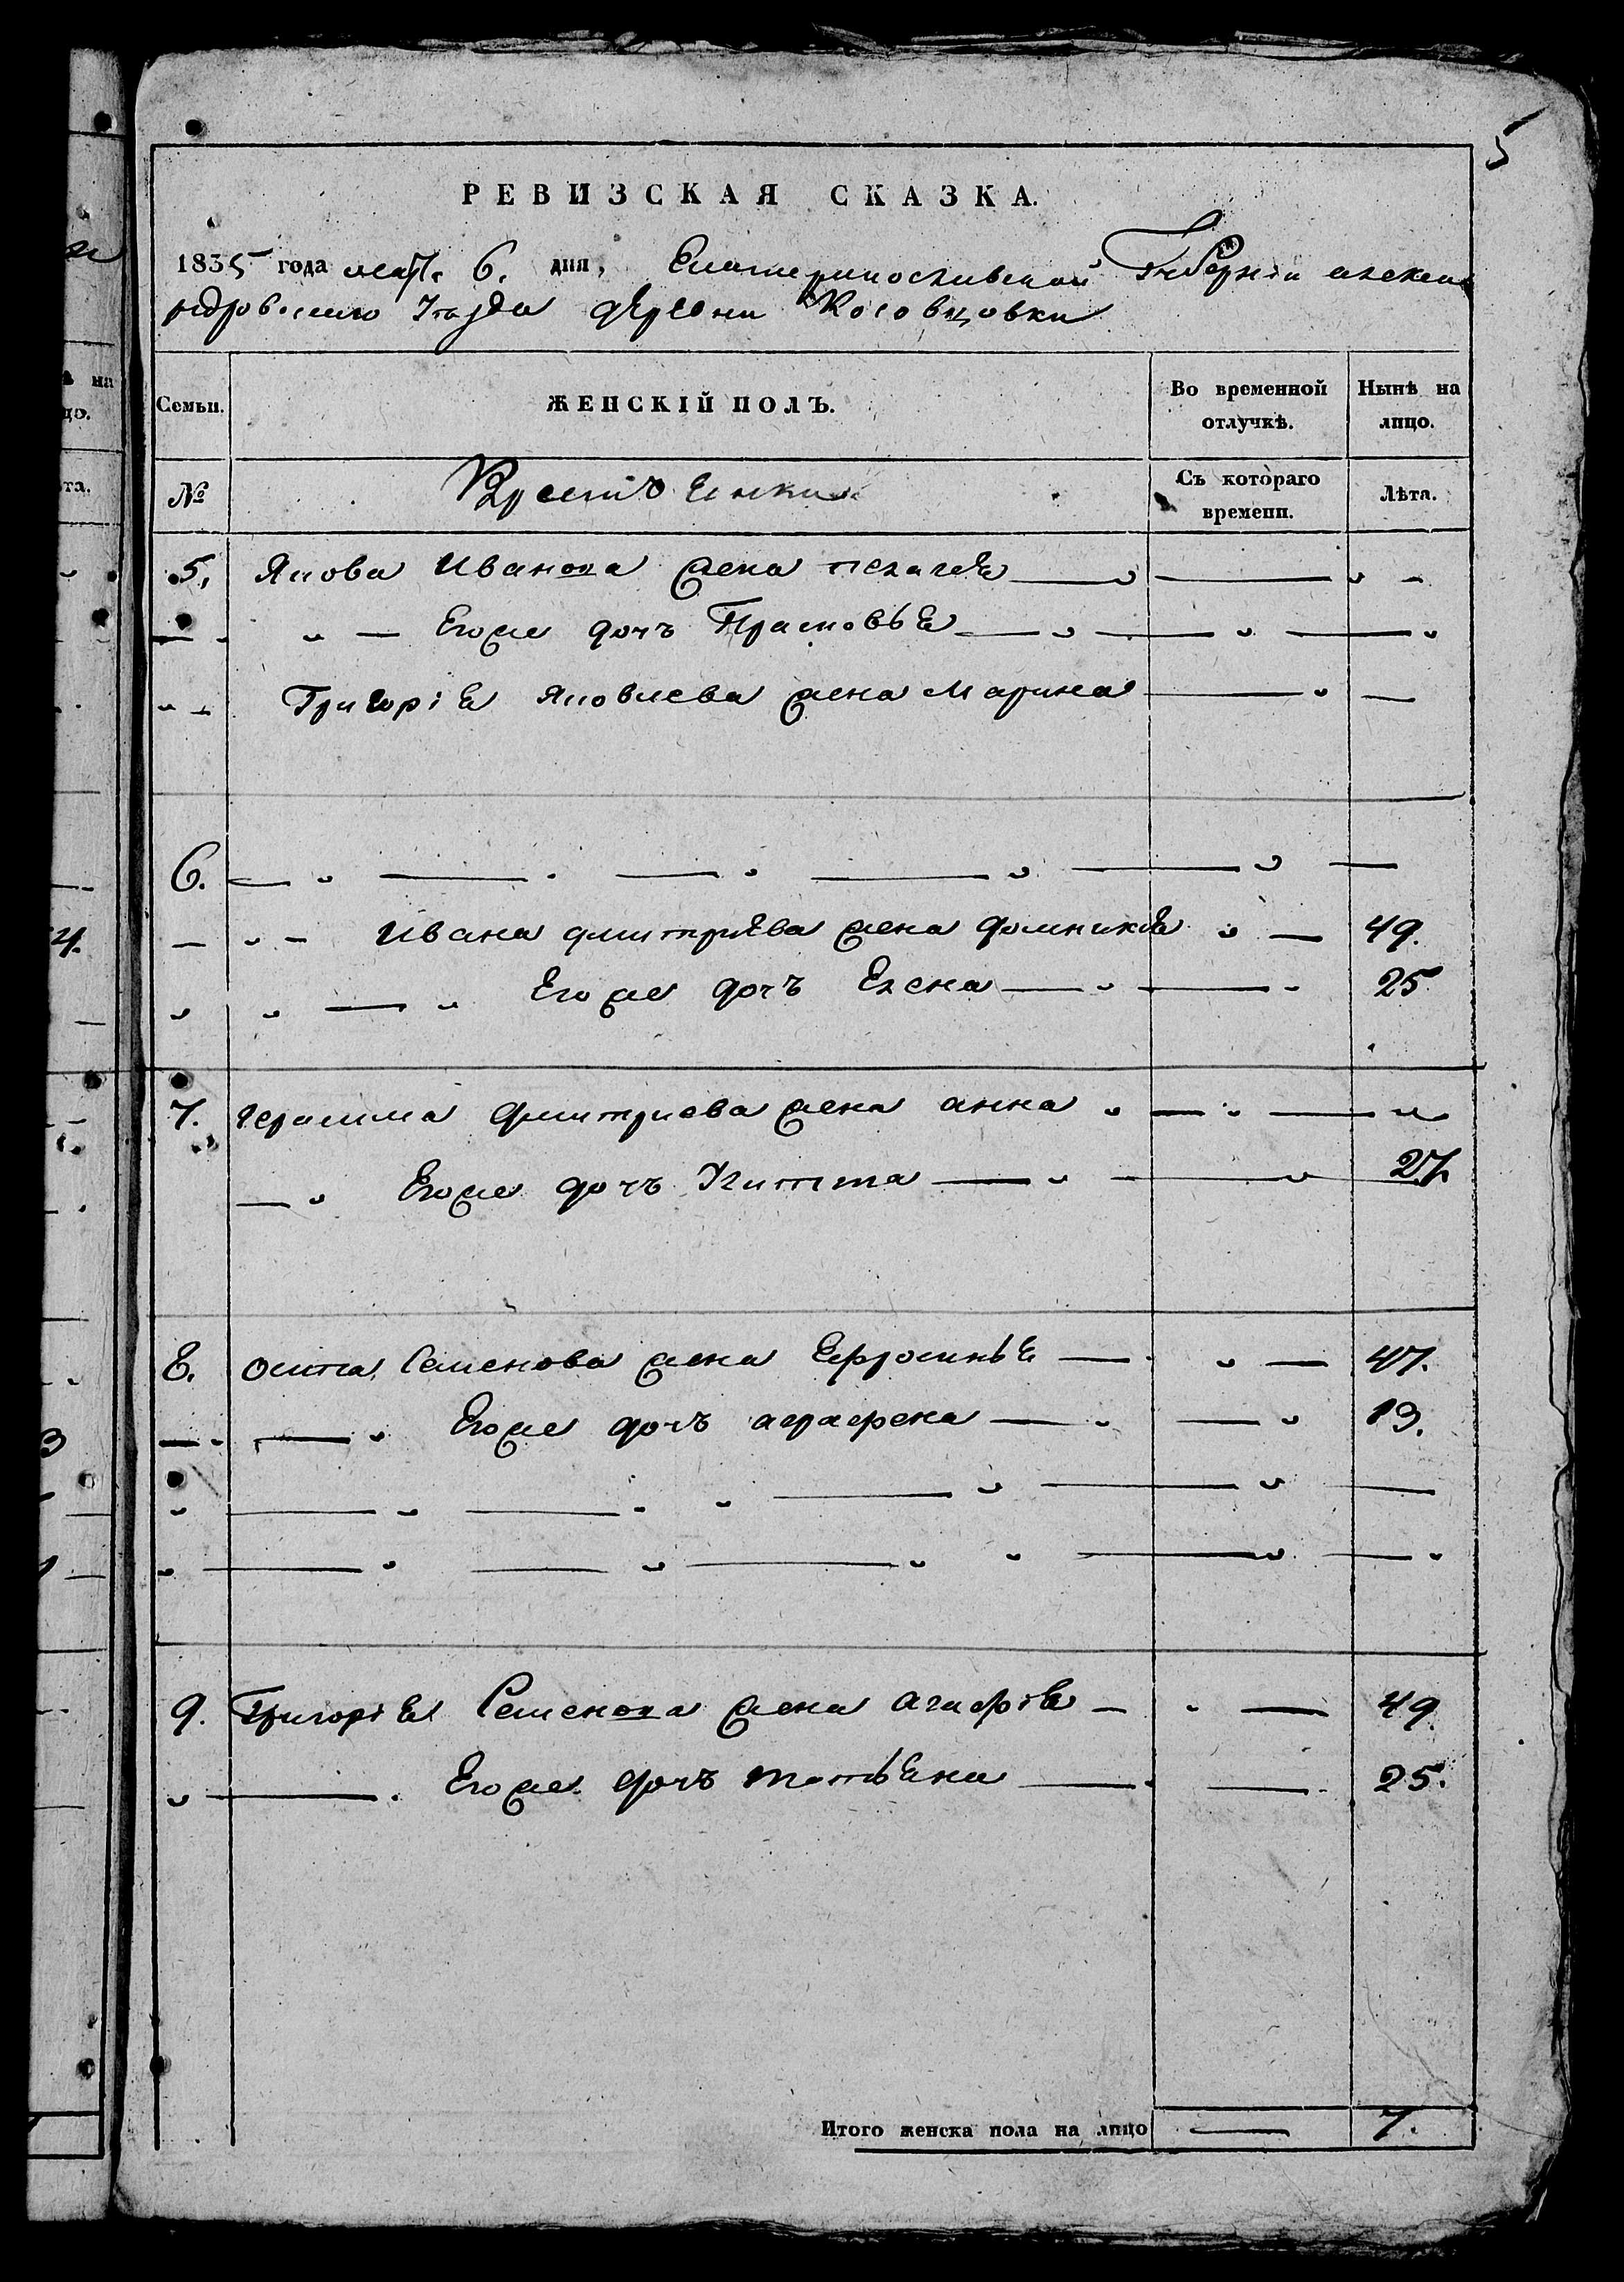 5
РЕВИЗСКАЯ СКАЗКА.
1835 года 6. дня, Екатеринославской Губерніи алексан
ндровскаго Уезда деревни
Семьи. ЖЕНСКІЙ ПОЛЪ. Во временной отлучкѣ. Нынѣ на лицо.
№ Крестьянки Съ котораго времени. Лѣта.
5. Якова Иванова жена пелагея — —
— " — Егоже дочь Прасковья — —
" — Григорія Яковлева жена Марина — —
6. — " — " — " —
— " — Ивана дмитріева жена домникія " — 49.
" " — " Егоже дочь Елена — " — 25
7. герасима дмитриева жена анна " — " — "
— " Егоже дочь Улитта — " — " 27
8. осипа Семенова жена Ефросинья — " — 47.
— " — " Егоже дочь аграфена — " — " 13.
" — " — " — " — " —
" — " — " — " " — " — "
9. Григорія Семенова жена агафія — " — 49
" — . Егоже дочь татьяна — — 25.
Итого женска пола на лицо — 7.